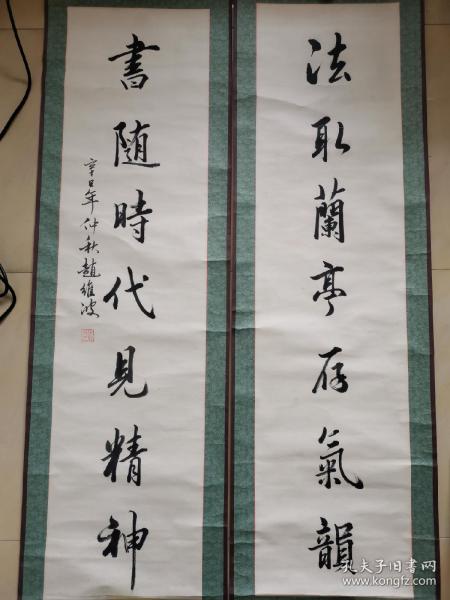 法取蘭亭存氣韻
書隨時代見精神
辛巳年仲秋趙維波
孔夫子旧书网
www.kongfz.com